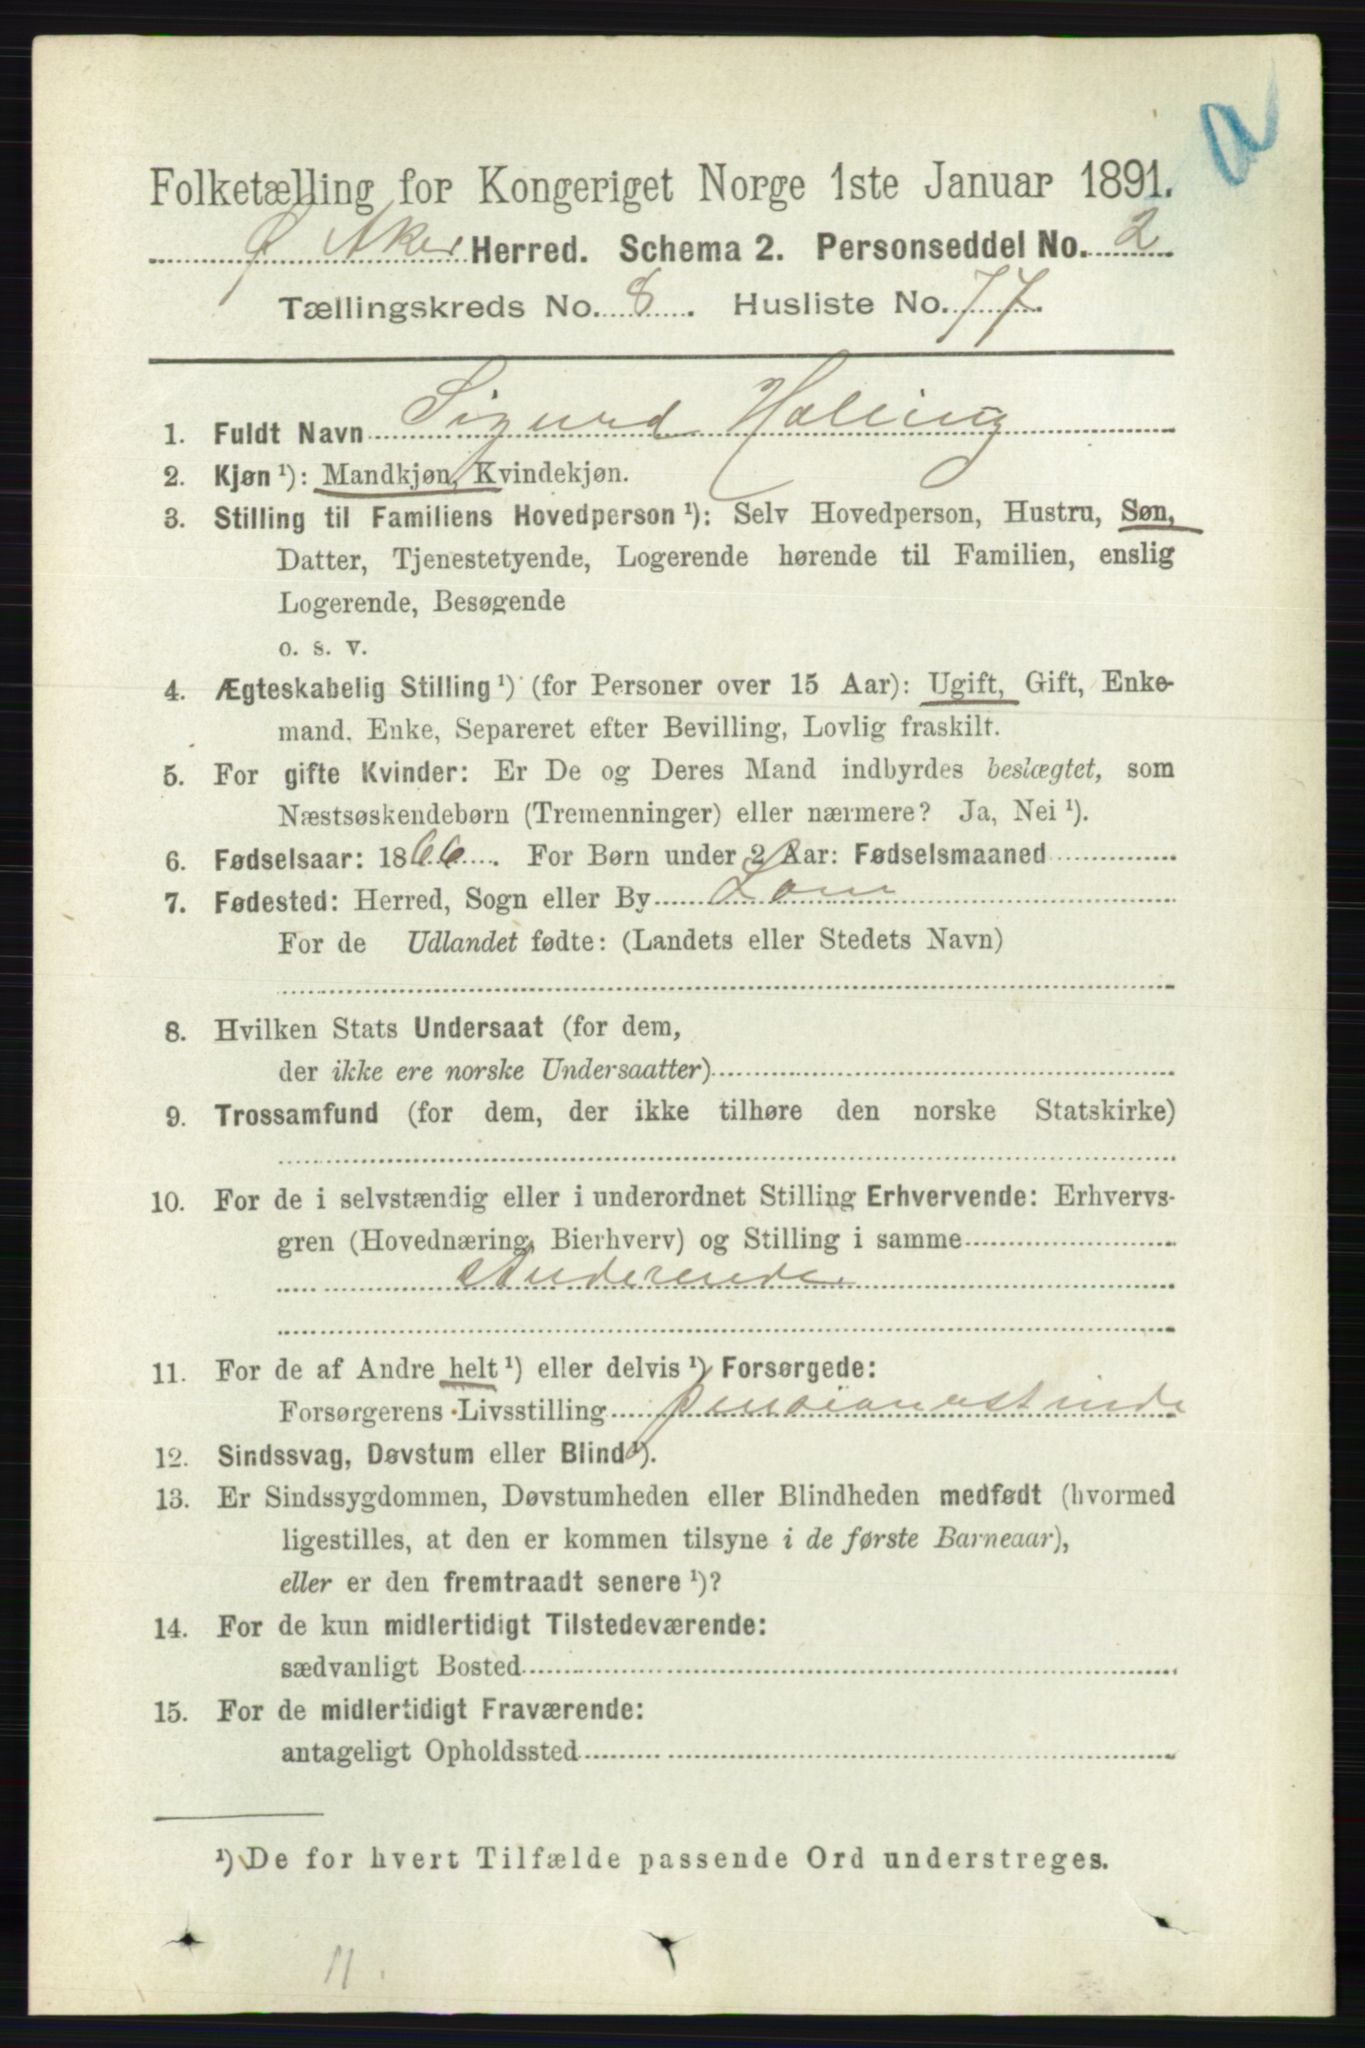 a
Folketælling for Kongeriget Norge 1ste Januar 1891.
Ø Aker Herred. Schema 2. Personseddel No. 2
Tællingskreds No. 8. Husliste No. 77.
1. Fuldt Navn Sigurd Holling
2. Kjøn ¹): Mandkjøn, Kvindekjøn.
3. Stilling til Familiens Hovedperson ¹): Selv Hovedperson, Hustru, Søn,
Datter, Tjenestetyende, Logerende hørende til Familien, enslig
Logerende, Besøgende
o. s. v.
4. Ægteskabelig Stilling ¹) (for Personer over 15 Aar): Ugift, Gift, Enke-
mand, Enke, Separeret efter Bevilling, Lovlig fraskilt.
5. For gifte Kvinder: Er De og Deres Mand indbyrdes beslægtet, som
Næstsøskendebørn (Tremenninger) eller nærmere? Ja, Nei ¹).
6. Fødselsaar: 1866. For Børn under 2 Aar: Fødselsmaaned
7. Fødested: Herred, Sogn eller By Lom
For de Udlandet fødte: (Landets eller Stedets Navn)
8. Hvilken Stats Undersaat (for dem,
der ikke ere norske Undersaatter)
9. Trossamfund (for dem, der ikke tilhøre den norske Statskirke)
10. For de i selvstændig eller i underordnet Stilling Erhvervende: Erhvervs-
gren (Hovednæring, Bierhverv) og Stilling i samme
studerende
11. For de af Andre helt ¹) eller delvis ¹) Forsørgede:
Forsørgerens Livsstilling pensionertinde
12. Sindssvag, Døvstum eller Blind ¹).
13. Er Sindssygdommen, Døvstumheden eller Blindheden medfødt (hvormed
ligestilles, at den er kommen tilsyne i de første Barneaar),
eller er den fremtraadt senere ¹)?
14. For de kun midlertidigt Tilstedeværende:
sædvanligt Bosted
15. For de midlertidigt Fraværende:
antageligt Opholdssted
¹) De for hvert Tilfælde passende Ord understreges.
11.